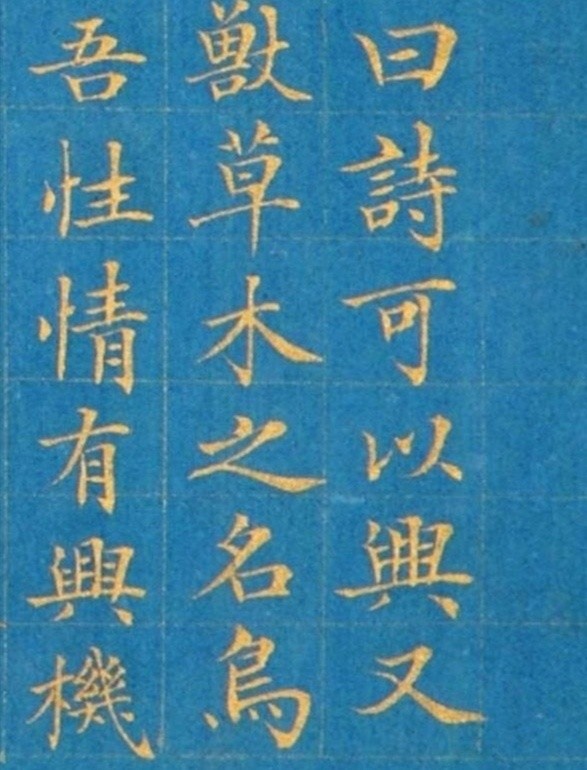 曰詩可以興又
獸草木之名鳥
吾性情有興機